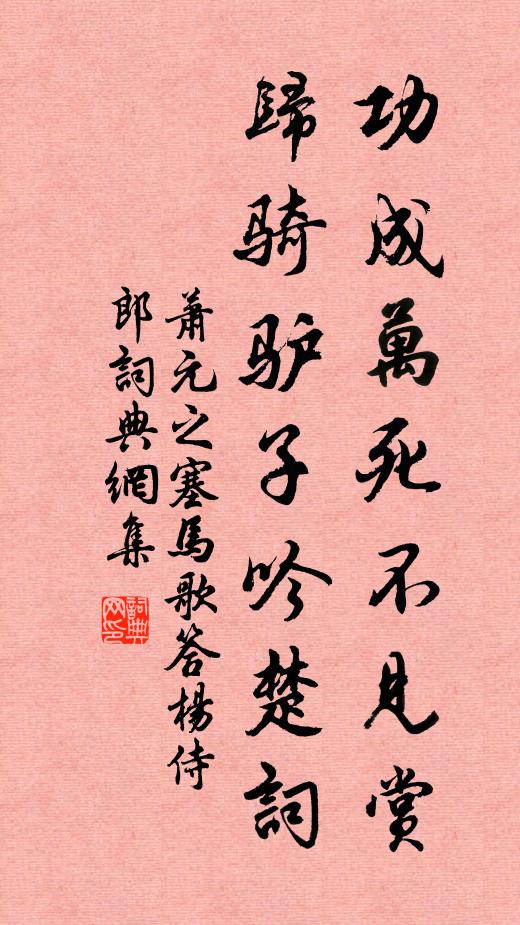 功成萬死不見賞
歸骑驴子吟楚詞
蕭元之塞馬歌答楊侍
郎詞典網集
詞典
网印